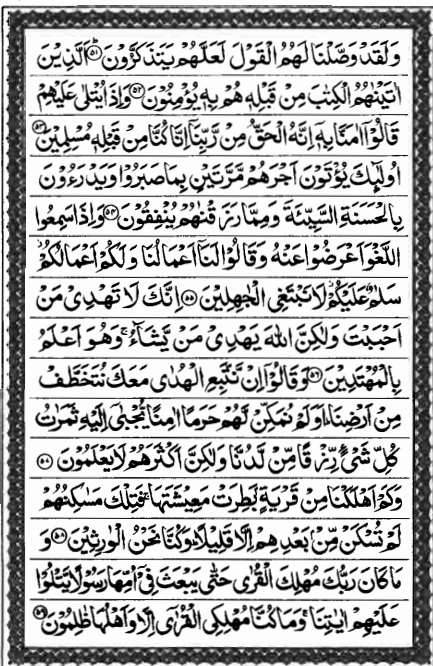 وَلَقَدْ وَصَّلْنَا لَهُمُ الْقَوْلَ لَعَلَّهُمْ يَتَذَكَّرُوْنَ ۝۵۱ اَلَّذِيْنَ
اٰتَيْنٰهُمُ الْكِتٰبَ مِنْ قَبْلِهٖ هُمْ بِهٖ يُؤْمِنُوْنَ ۝۵۲ وَاِذَا يُتْلٰى عَلَيْهِمْ
قَالُوْۤا اٰمَنَّا بِهٖۤ اِنَّهُ الْحَقُّ مِنْ رَّبِّنَاۤ اِنَّا كُنَّا مِنْ قَبْلِهٖ مُسْلِمِيْنَ ۝۵۳
اُولٰٓئِكَ يُؤْتَوْنَ اَجْرَهُمْ مَّرَّتَيْنِ بِمَا صَبَرُوْا وَيَدْرَءُوْنَ
بِالْحَسَنَةِ السَّيِّئَةَ وَمِمَّا رَزَقْنٰهُمْ يُنْفِقُوْنَ ۝۵۴ وَاِذَا سَمِعُوا
اللَّغْوَ اَعْرَضُوْا عَنْهُ وَقَالُوْا لَنَاۤ اَعْمَالُنَا وَلَكُمْ اَعْمَالُكُمْ
سَلٰمٌ عَلَيْكُمْ لَا نَبْتَغِى الْجٰهِلِيْنَ ۝۵۵ اِنَّكَ لَا تَهْدِىْ مَنْ
اَحْبَبْتَ وَلٰكِنَّ اللّٰهَ يَهْدِىْ مَنْ يَّشَآءُ ۚ وَهُوَ اَعْلَمُ
بِالْمُهْتَدِيْنَ ۝۵۶ وَقَالُوْۤا اِنْ نَّتَّبِعِ الْهُدٰى مَعَكَ نُتَخَطَّفْ
مِنْ اَرْضِنَا ؕ اَوَلَمْ نُمَكِّنْ لَّهُمْ حَرَمًا اٰمِنًا يُّجْبٰۤى اِلَيْهِ ثَمَرٰتُ
كُلِّ شَىْءٍ رِّزْقًا مِّنْ لَّدُنَّا وَلٰكِنَّ اَكْثَرَهُمْ لَا يَعْلَمُوْنَ ۝۵۷
وَكَمْ اَهْلَكْنَا مِنْ قَرْيَةٍۢ بَطِرَتْ مَعِيْشَتَهَا ۚ فَتِلْكَ مَسٰكِنُهُمْ
لَمْ تُسْكَنْ مِّنْۢ بَعْدِهِمْ اِلَّا قَلِيْلًا ؕ وَكُنَّا نَحْنُ الْوٰرِثِيْنَ ۝۵۸ وَ
مَا كَانَ رَبُّكَ مُهْلِكَ الْقُرٰى حَتّٰى يَبْعَثَ فِىْۤ اُمِّهَا رَسُوْلًا يَّتْلُوْا
عَلَيْهِمْ اٰيٰتِنَا ۚ وَمَا كُنَّا مُهْلِكِى الْقُرٰۤى اِلَّا وَاَهْلُهَا ظٰلِمُوْنَ ۝۵۹